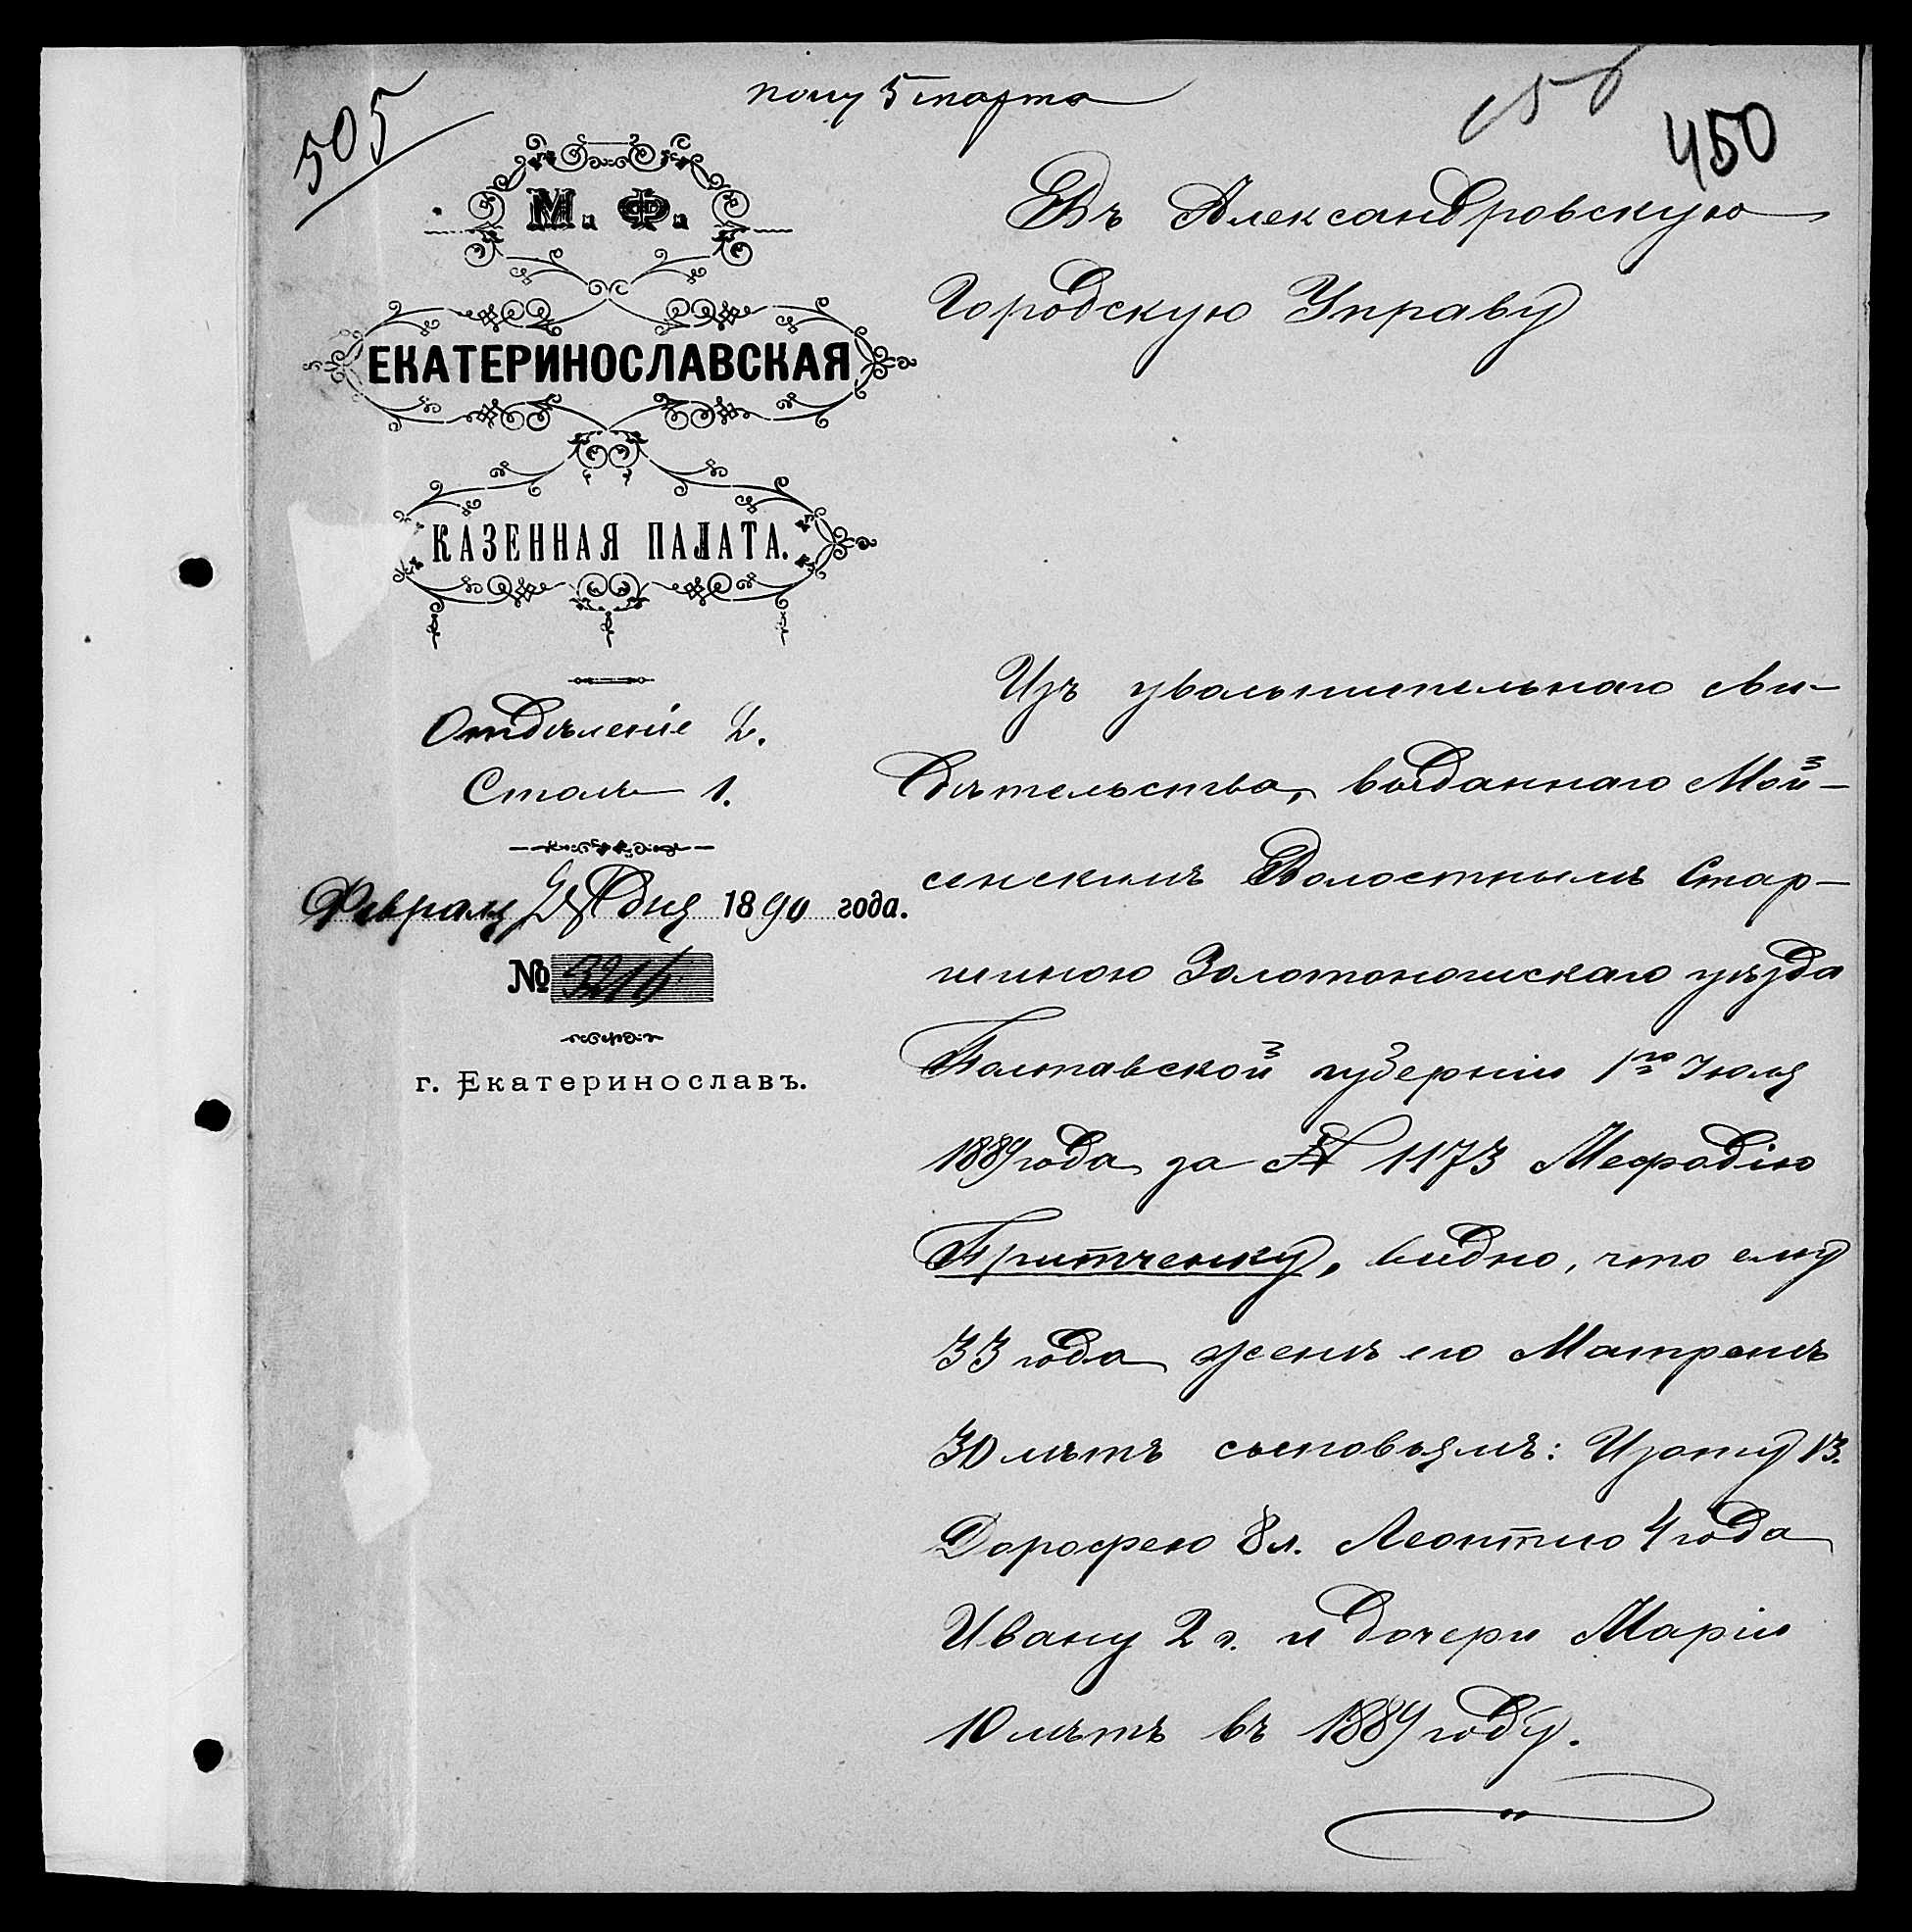 505
полу 5 марта
450
М. Ф.
ЕКАТЕРИНОСЛАВСКАЯ
КАЗЕННАЯ ПАЛАТА.
Отдѣленіе 2.
Столъ 1.
Февраля дня 1890 года.
№ 3216
г. Екатеринославъ.
Въ Александровскую
Городскую Управу
Изъ увольнительнаго сви-
дѣтельства, выданнаго Мой-
сенскимъ Волостнымъ Стар-
шиною Золотоношскаго уѣзда
Полтавской губерніи 1го Іюля
1889 года за № 1173 Мефодію
Притченку, видно, что ему
33 года женѣ его Матренѣ
30 лѣтъ сыновьямъ: Изоту 13.
Дорофею 8 л. Леонтию 4 года
Ивану 2 г. и дочери Маріи
10 лѣтъ въ 1889 году.